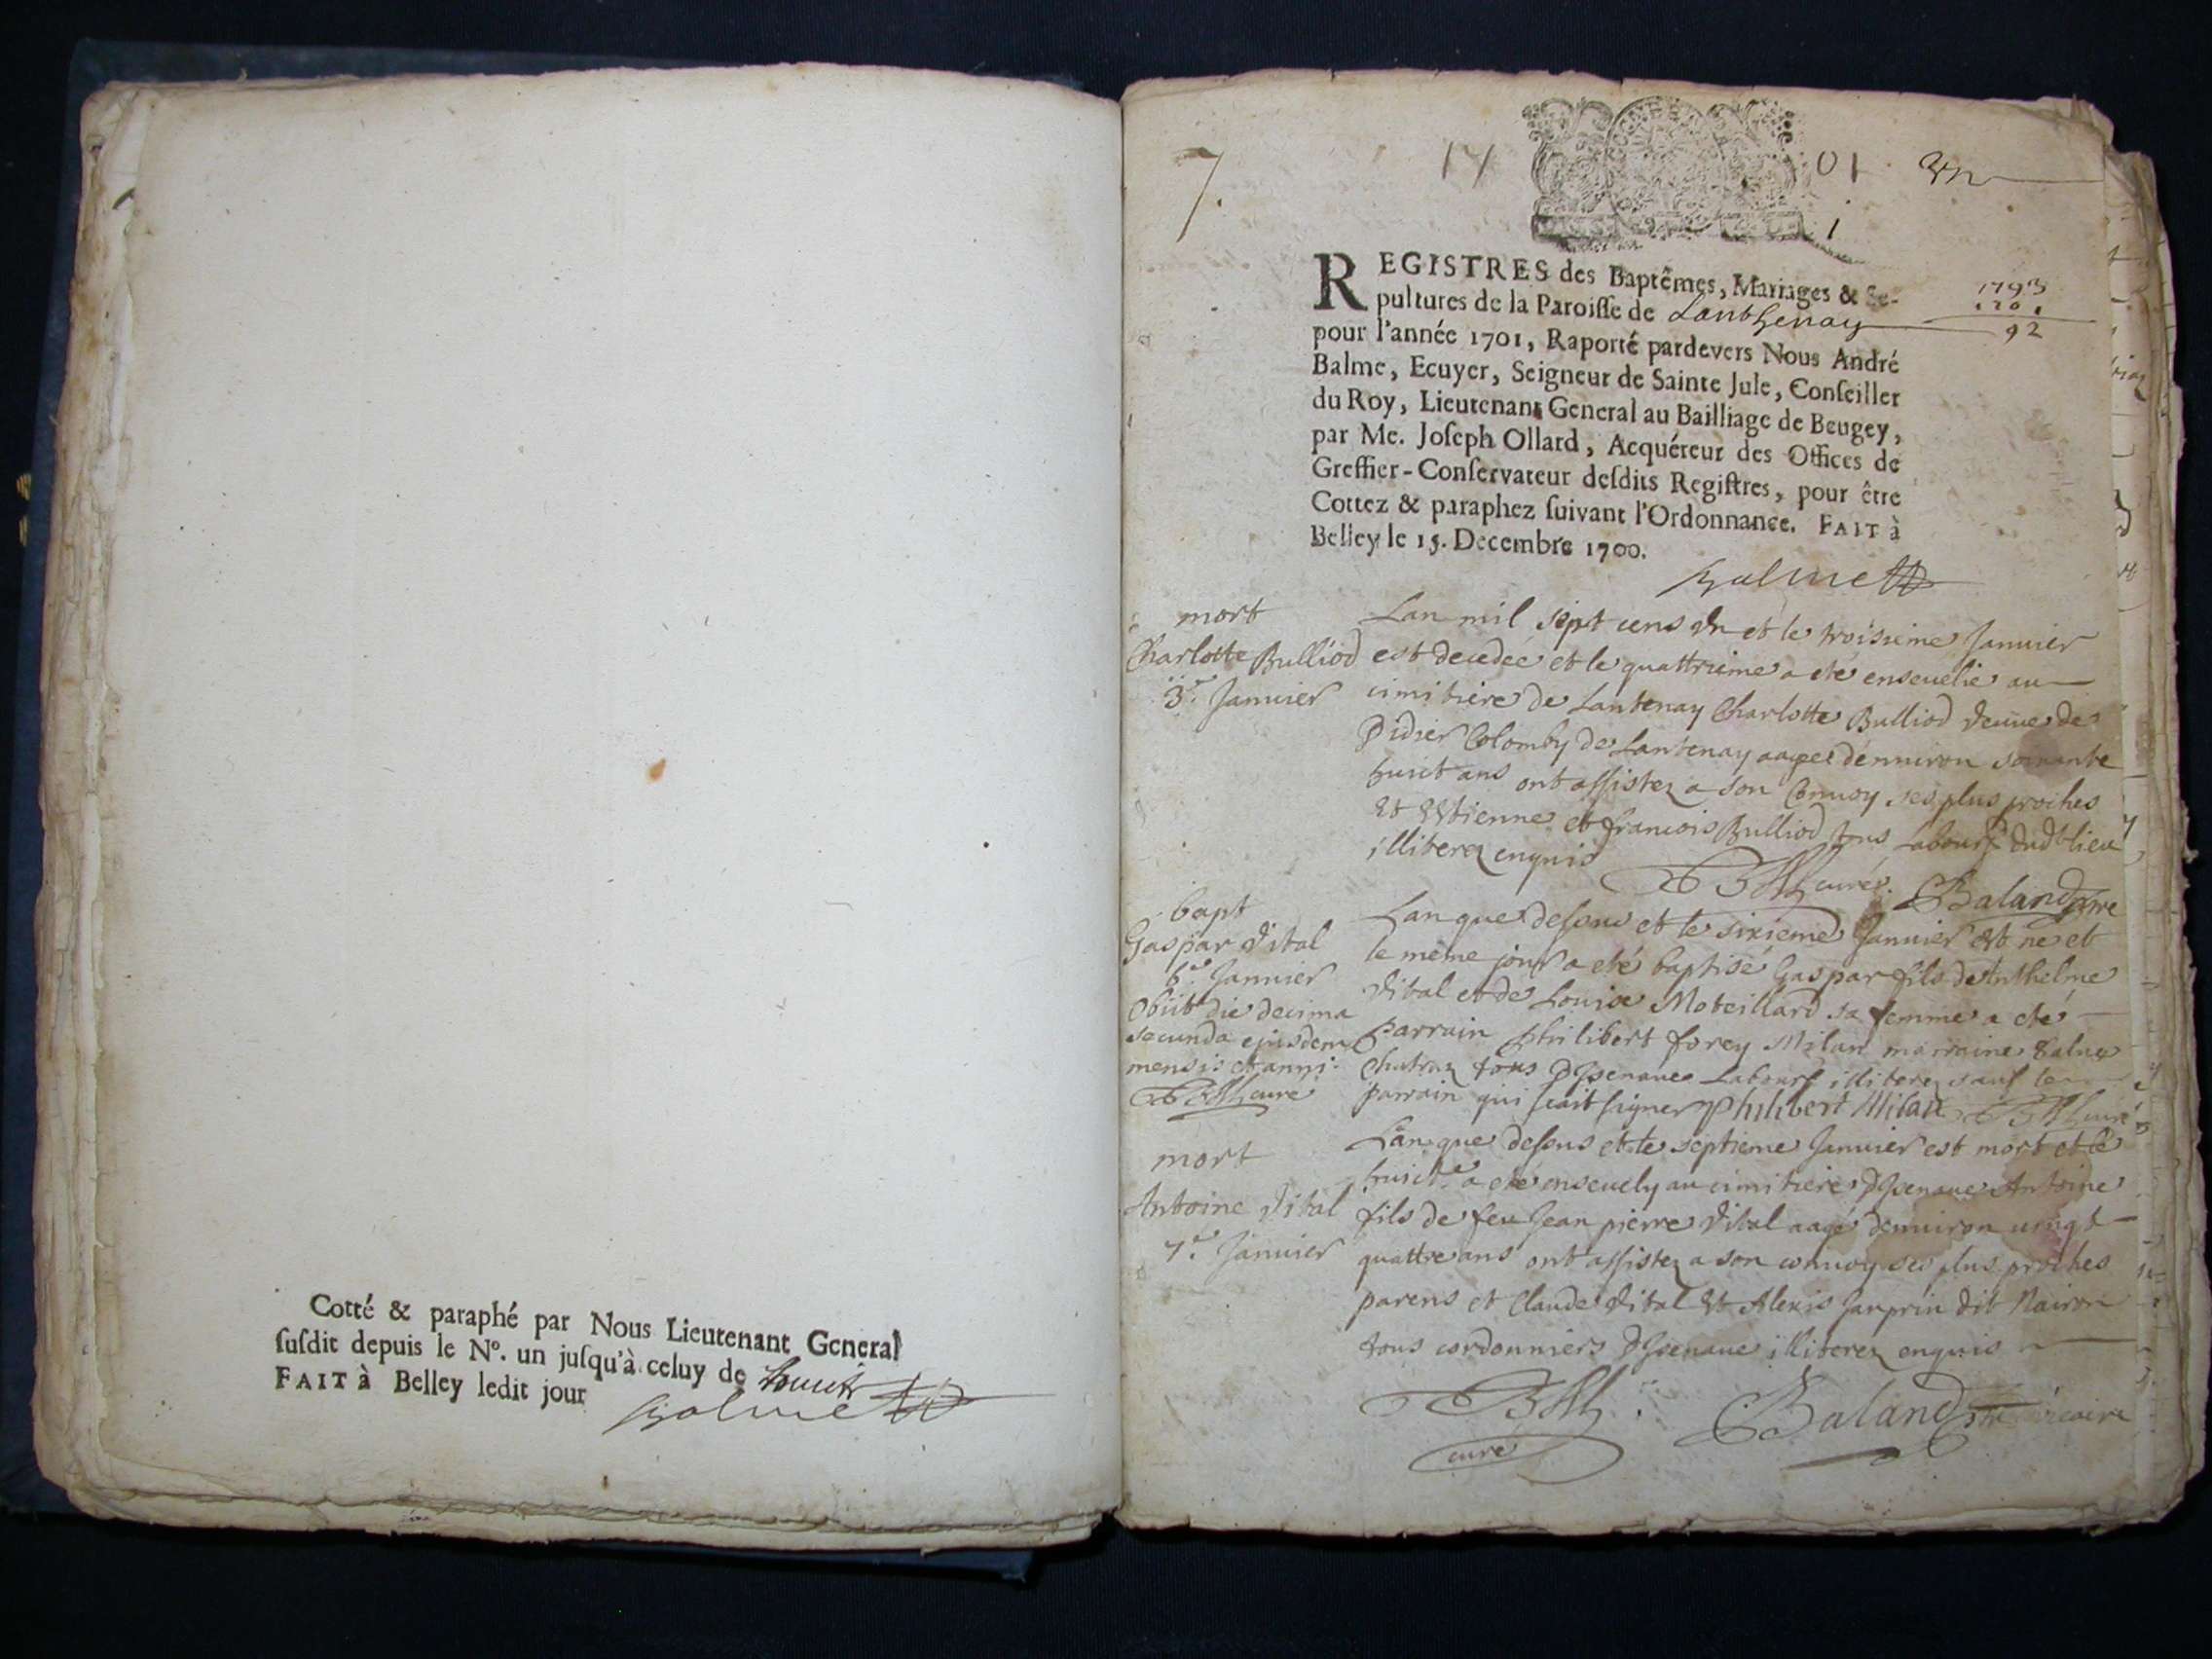 Cotté & paraphé par Nous Lieutenant General
suſdit depuis le N°. un juſqu'à celuy de
FAIT à Belley ledit jour
Balme
7.
17 01
1
REGISTRES des Baptêmes, Mariages & Se-
pultures de la Paroiſſe de Lanthenay
pour l'année 1701, Raporté pardevers Nous André
Balme, Ecuyer, Seigneur de Sainte Jule, Conſeiller
du Roy, Lieutenant General au Bailliage de Beugey,
par Me. Joſeph Ollard, Acquéreur des Offices de
Greffier-Conſervateur deſdits Regiſtres, pour être
Cottez & paraphez ſuivant l'Ordonnance. FAIT à
Belley le 15. Decembre 1700.
1793
1701
92
Balme
mort
Charlotte Bulliod
3.e Januier
Lan mil sept cens vn et le troisieme Januier
est decedée et le quattrieme a eté enseuelie au
cimitiere de Lantenay Charlotte Bulliod veuue de
Didier Colomby de Lantenay aagee d'enuiron soixante
huict ans ont assistez a son Conuoy ses plus proches
Et Estienne et francois Bulliod tous Labours dudt lieu
illiterez enquis
curé. Baland ptre
bapt
Gaspar Vital
6.e Januier
Obiit die decima
secunda ejusdem
mensis et anni.
curé
Lan que dessus et le sixieme Januier est né et
le même jour a eté baptisé Gaspar fils de Anthelme
Vital et de Louise Moteillard sa femme a eté
parrain philibert forey Milan marraine
tous Labours illiterez sauf le
parrain qui scait signer Philibert Milan curé
mort
Antoine Vital
7.e Januier
Lan que dessus et le septieme Januier est mort et le
huict.e a eté enseuely au cimitiere Antoine
fils de feu Jean pierre Vital aagé denuiron uingt
quattre ans ont assistez a son conuoy ses plus proches
parens et Claude Vital Et Alexis Janprin dit Nairon
tous cordonniers illiterez enquis
curé
Baland ptre vicaire